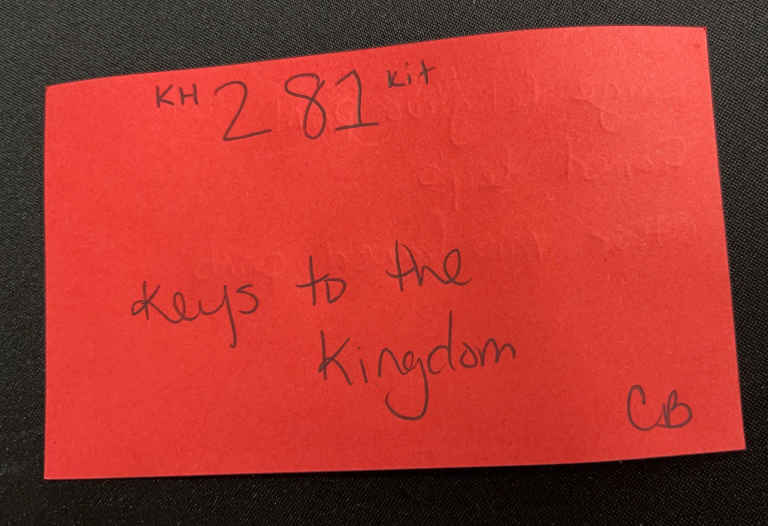 KH 281 Kit
Keys to the
Kingdom
CB